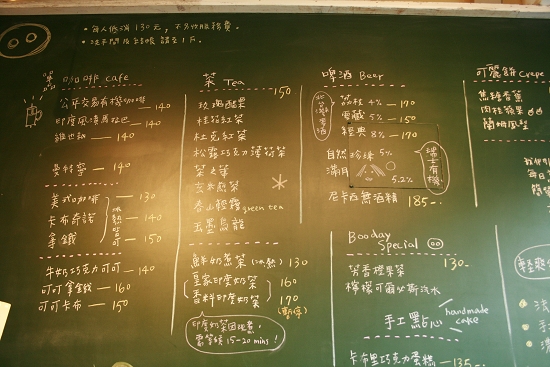 • 每人低消130元,不另收服務費。
• 請至1F。
cafe
公平交易有機咖啡 — 140
印度風漬馬拉巴 — 140
維也納 — 140
曼特寧 — 140
美式咖啡 — 130
卡布奇諾 — 140
拿鐵 — 150
冰熱皆可
牛奶巧克力可可 — 140
可可拿鐵 — 160
可可卡布 — 150
茶 Tea 150
玫瑰醋栗
桂花紅茶
杜克紅茶
松露巧克力薄荷茶
茶之華
玄米煎茶
春山輕霧 green tea
玉墨烏龍
鮮奶煮茶 (冰/熱) 130
皇家印度奶茶 160
香料印度奶茶 170
(暫停)
印度奶茶因現煮,
需等候15-20 mins!
啤酒 Beer
荔枝 4% — 170
雪藏 5% — 150
經典 8% — 170
自然 珍珠 5%
滿月 5.2%
瑞士有機
尼卡西無酒精 185-
Booday
Special
芳香橙果茶 130-
檸檬可爾必斯汽水
手工點心
handmade
cake
卡布里巧克力蛋糕 — 135-
可麗餅 Crepe
焦糖香蕉
肉桂蘋果
蘭姆風型
我們
每日